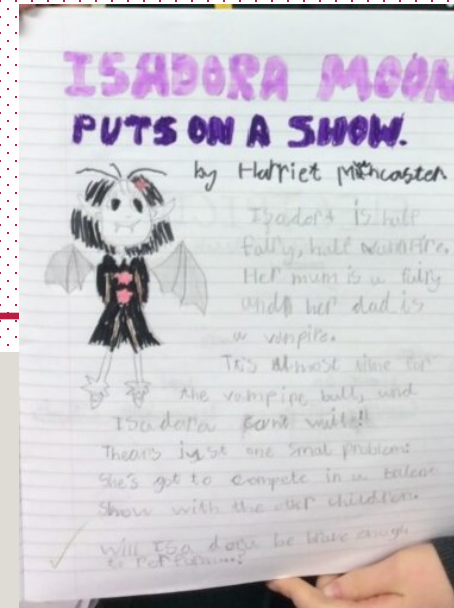 ISADORA MOON
PUTS ON A SHOW.
by Harriet Muncaster
Isadora is half
fairy, half vampire.
Her mum is a fairy
and her dad is
a vampire.
It's almost time for
the vampire ball, and
Isadora can't wait!!
Thears just one smal problem:
She's got to compete in a talent
show with the other children.
Will Isadora be brave enugh
to perform...!